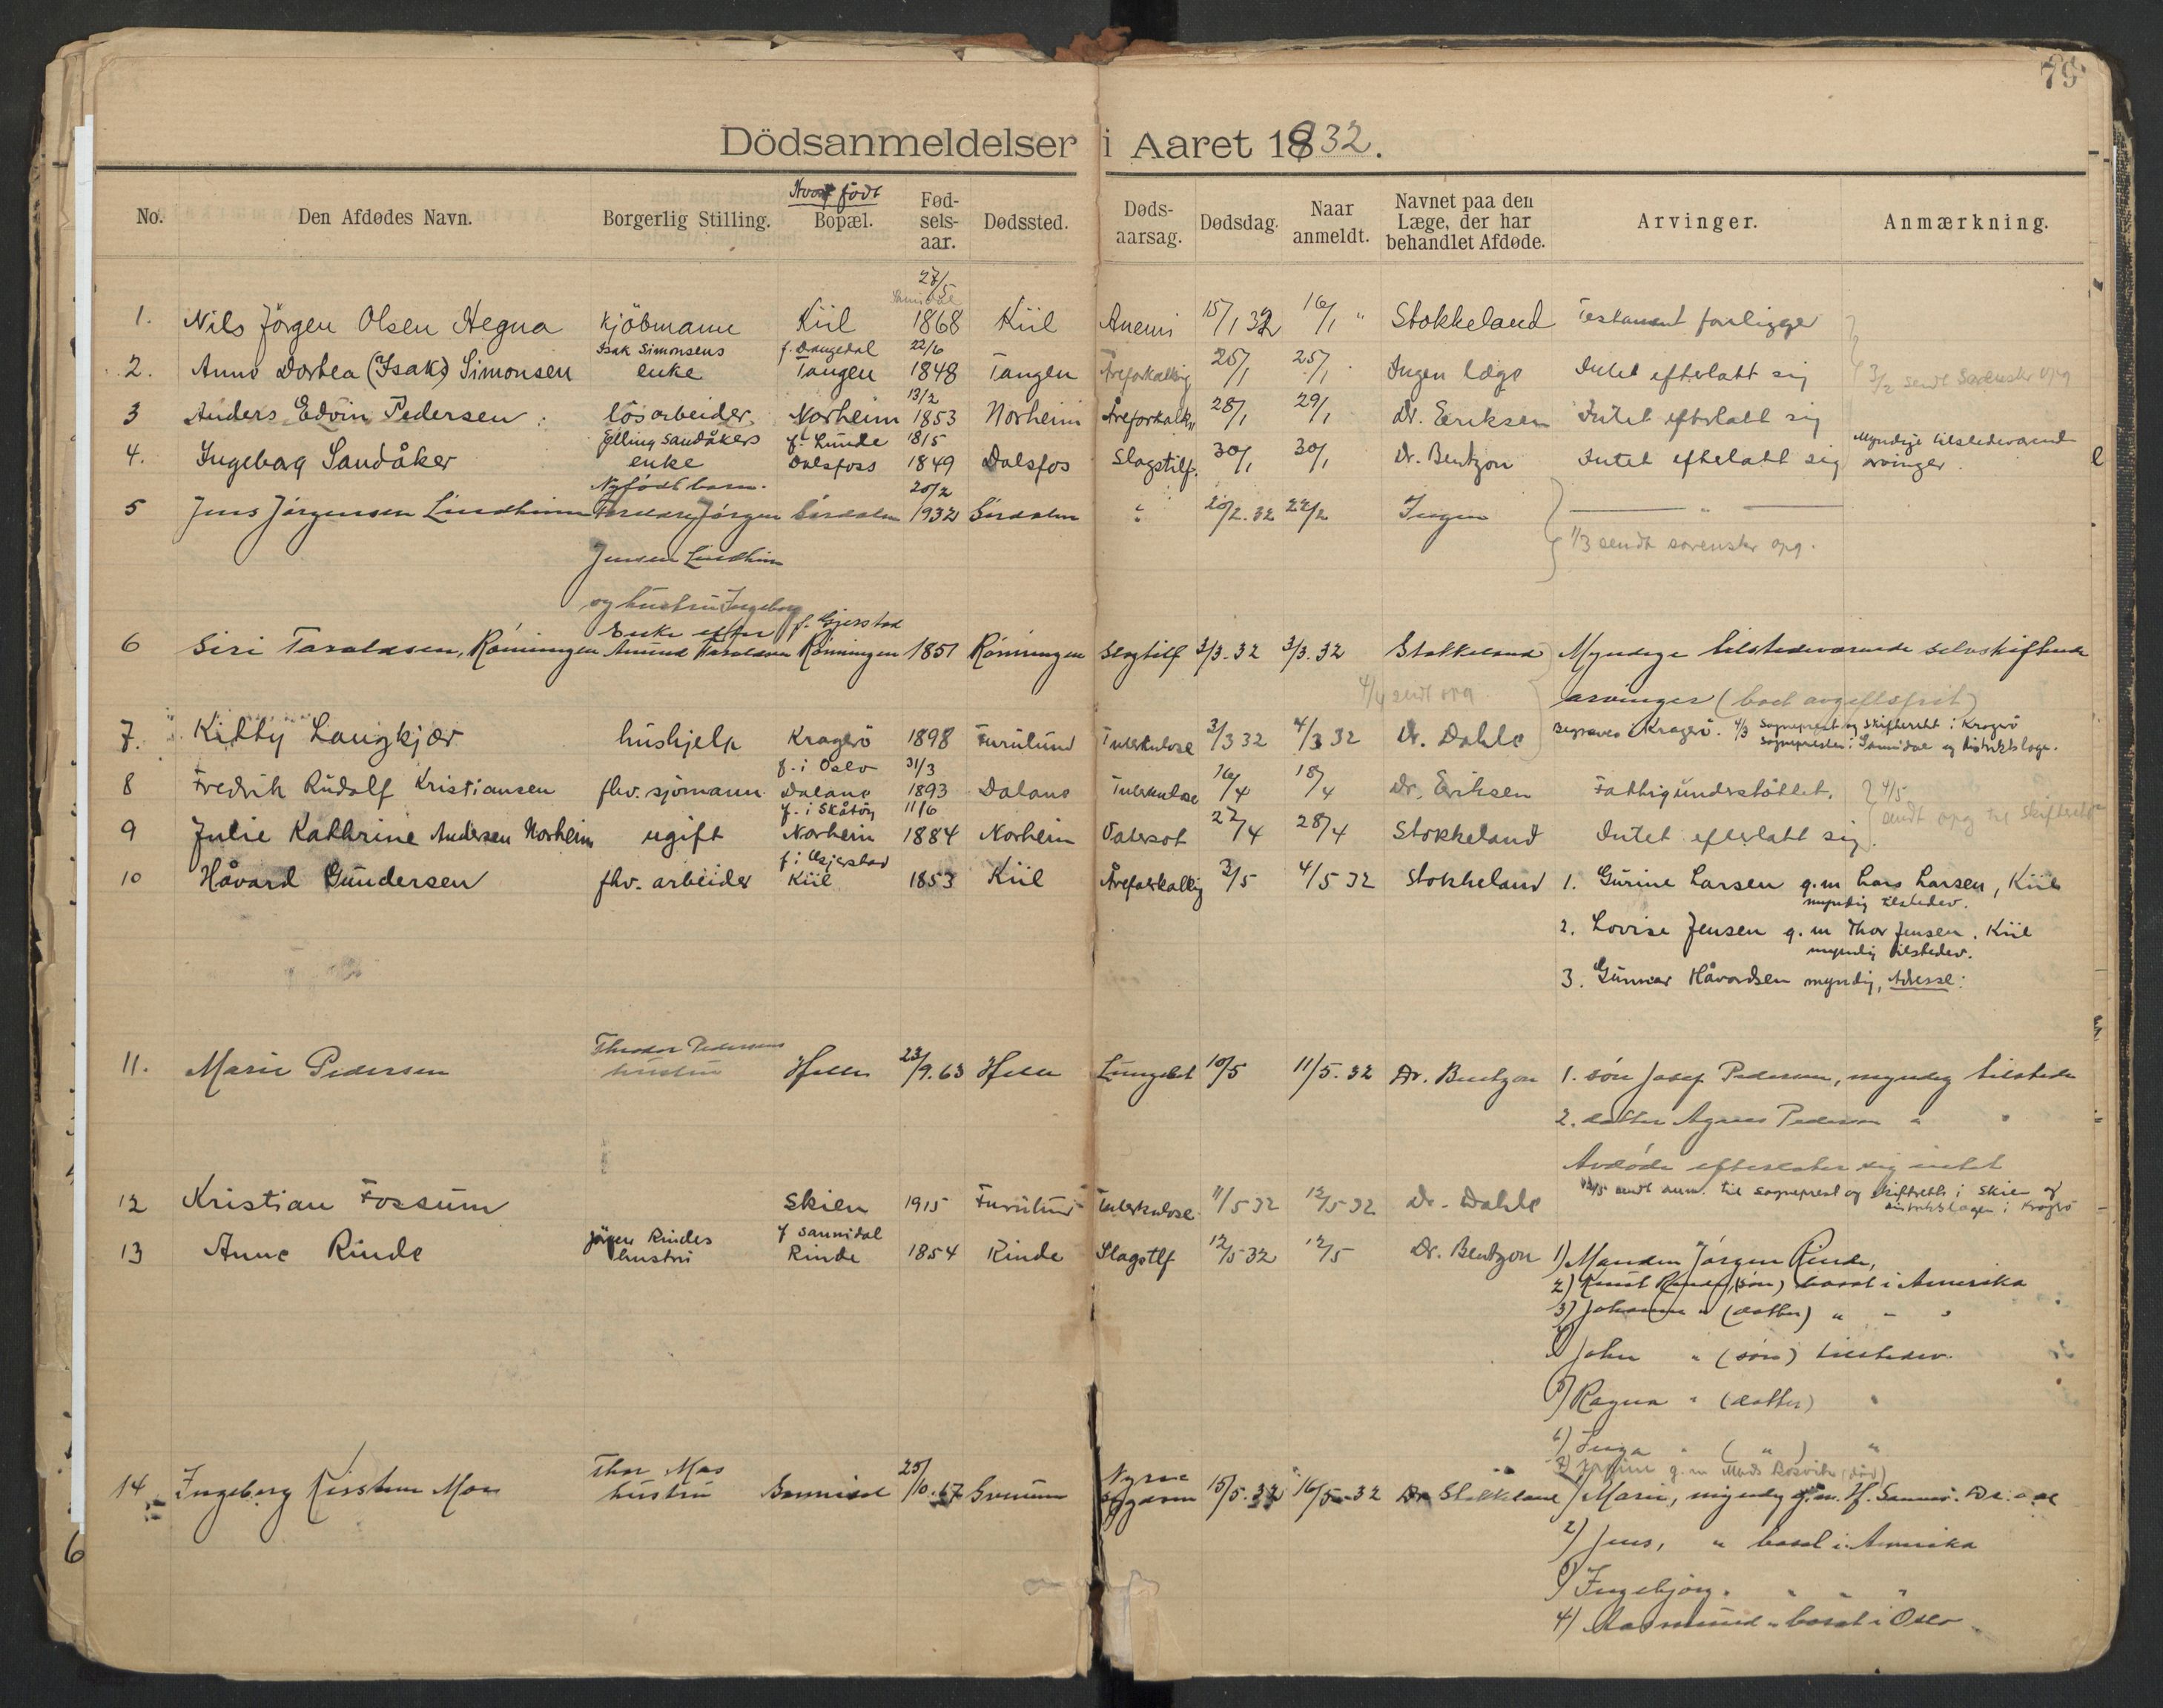 79
Dödsanmeldelser i Aaret 1932.
No. Den Afdødes Navn. Borgerlig Stilling. Hvor født Bopæl. Fød-sels-aar. Dødssted. Døds-aarsag. Dødsdag. Naar anmeldt. Navnet paa den Læge, der har behandlet Afdøde. Arvinger. Anmærkning.
27/5
1. Nils Jörgen Olsen Hegna kjöbmann Kiil 1868 Kiil Anemi 15/1 32 16/1 " Stokkeland Testament foreligger
Isak Simonsens f. Drangedal 22/6
2. Anne Dorthea (Isak) Simonsen enke Tangen 1848 Tangen Åreforkalkig 25/1 25/1 Ingen læge Intet efterlatt sig
3/2 sendt sorenskr opg
13/2
3 Anders Edvin Pedersen lösarbeider Norheim 1853 Norheim Åreforkalkn 28/1 29/1 Dr. Eriksen Intet efterlatt sig
Elling Sandåkers f. Lunde 18/5
4. Ingeborg Sandåker enke Dalsfoss 1849 Dalsfos Slagtilf. 30/1 30/1 Dr. Bentzon Intet efterlatt sig Myndige tilstedeværend arvinger.
Nyfödt barn. 20/2
5 Jens Jörgensen Lindheim Foreldre Jörgen Sördalen 1932 Sördalen " 20/2. 32 22/2 Ingen "
Jensen Lindheim
1/3 sendt sorenskr opg.
og hustru Ingeborg
Enke efter f. Gjerstad
6 Siri Taraldsen, Rönningen Amund Taraldsen Rönningen 1851 Rönningen Slagtilf 3/3. 32 3/3. 32 Stokkeland Myndige tilstedeværende selvskiftende
4/4 sendt opg. arvinger (boet avgiftsfrit)
7. Kitty Langkjær hushjelp Kragerö 1898 Furulund Tuberkulose 3/3 32 4/3 32 Dr. Dahle Begraves i Kragerö. 4/3 Sogneprest og Skifterett i Kragerö
sognepresten i Sannidal og distriktslæge.
f. i Oslo 31/3
8 Fredrik Rudolf Kristiansen fhv. sjömann Dalane 1893 Dalane Tuberkulose 16/4 18/4 Dr. Eriksen Fattigunderstöttet. 4/5
f. i Skåtöy 11/6 sendt opg til skifterett
9 Julie Kathrine Andersen Norheim ugift Norheim 1884 Norheim Vatersot 27/4 28/4 Stokkeland Intet efterlatt sig.
f i Gjerstad
10 Håvard Gundersen fhv. arbeider Kiil 1853 Kiil Åreforkalkig 3/5 4/5 32 Stokkeland 1. Gurine Larsen g.m Lars Larsen, Kiil
myndig tilstedev.
2. Lovise Jensen g.m Thor Jensen. Kiil
myndig tilstedev.
3. Gunnar Håvardsen myndig, Adresse:
Theodor Pedersens
11. Marie Pedersen hustru Helle 23/9. 63 Helle Lungebet 10/5 11/5. 32 Dr. Bentzon 1. sön Josef Pedersen, myndig tilstede
2. datter Agnes Pedersen " "
Avdöde efterlater sig intet
12 Kristian Fossum Skien 1915 Furulund Tuberkulose 11/5 32 12/5 32 Dr. Dahle 12/5 sendt anm. til sogneprest og skifterett i Skien og
distriktslægen i Kragerö
Jörgen Rindes f Sannidal
13 Anne Rinde hustru Rinde 1854 Rinde Slagtlf 12/5 32 12/5 Dr. Bentzon 1) Manden Jörgen Rinde,
2) Knut Rinde (sön) bosat i Amerika
3) Johanne " (datter) " " "
4) John " (sön) tilstedev.
5) Ragna " (datter) "
6) Inga " ( " ) "
g.m Mads (död)
Thor Mos
14 Ingeborg Mos hustru Sannidal 25/10. 67 Nyre sygdom 15/5. 32 16/5 32 Dr Stokkeland 1) Marie, myndig g.m.
2) Jens, " bosat i Amerika
3) Ingebjörg " " "
4) Aasmund " bosat i Oslo